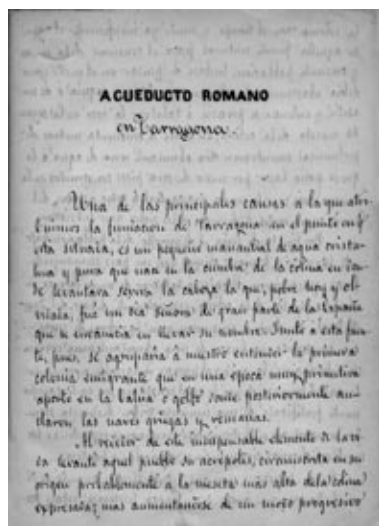 ACUEDUCTO ROMANO
en Tarragona.
Una de las principales causas a la que atri
buimos la fundacion de Tarragona en el punto en q.
está situada, es un pequeño manantial de agua crista-
lina y pura que nace en la cumbre de la colina en don
de levantara segura la cabeza la que, pobre hoy y ol-
vidada, fué un dia señora de gran parte de la España
que se envanecia en llevar su nombre. Junto a esta fuen
te, pues, se agruparia á nuestro entender la primera
colonia emigrante que en una época muy primitiva
aportó en la bahia o golfo donde posteriormente an-
claron las naves griegas y romanas.
Al redor de este indispensable elemento de la vi
da levantó aquel pueblo su acrópolis, circunscrita en su
origen probablemente á la meseta más alta de la colina
expresada; mas aumentandose de un modo progresivo